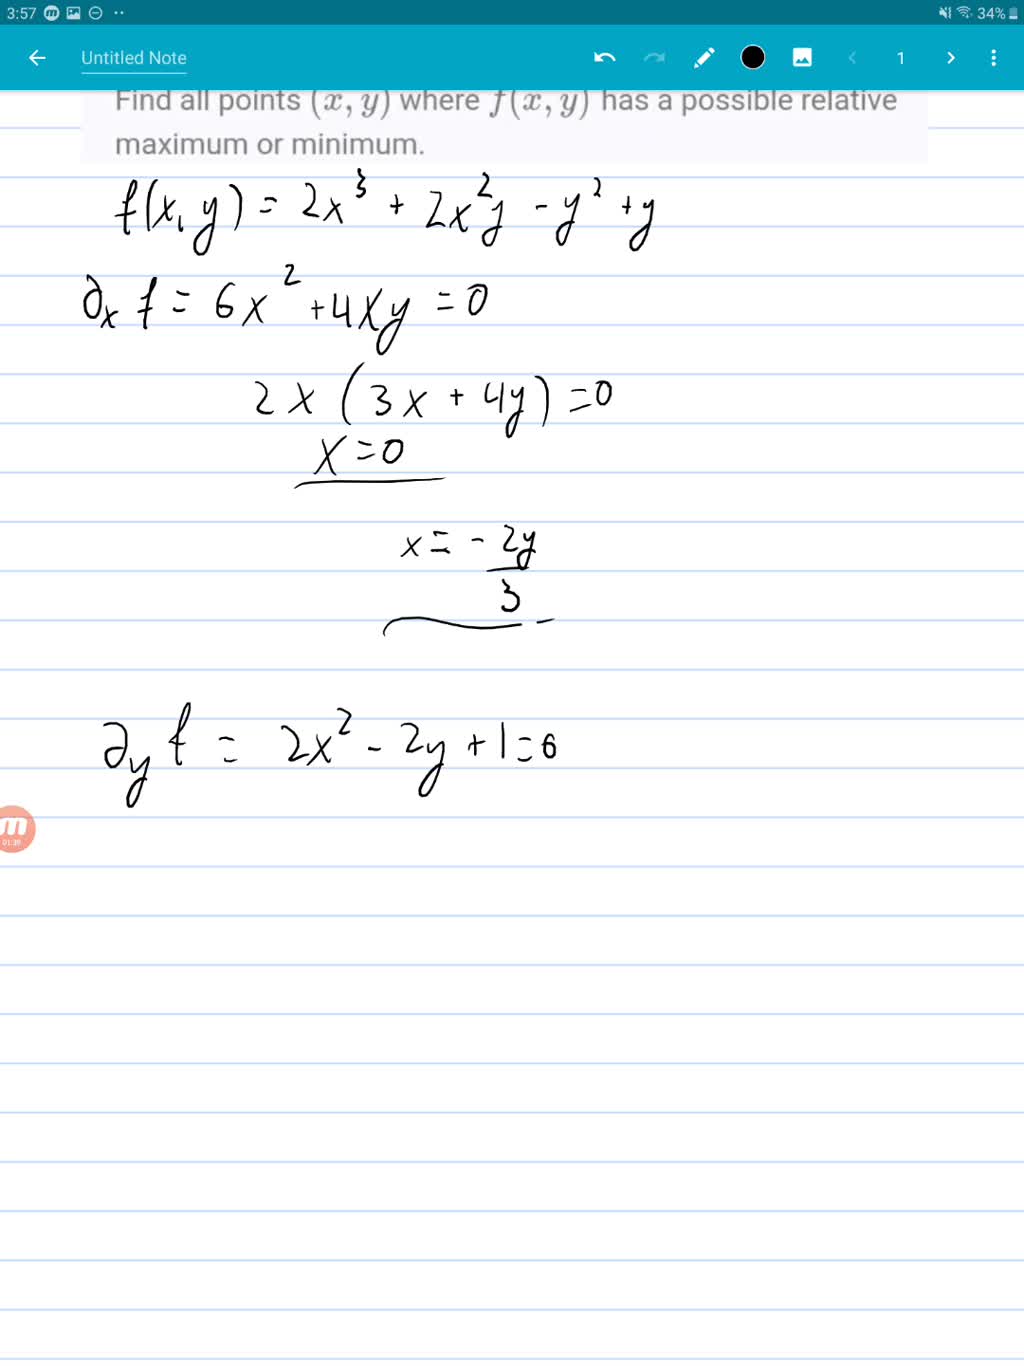 3:57 34%
Untitled Note 1
Find all points (x, y) where f(x, y) has a possible relative
maximum or minimum.
f(x, y) = 2x³ + 2x²y - y² + y
∂ₓ f = 6x² + 4xy = 0
2x (3x + 4y) = 0
x = 0
x = - 2y/3
∂y f = 2x² - 2y + 1 = 0
m
01:39